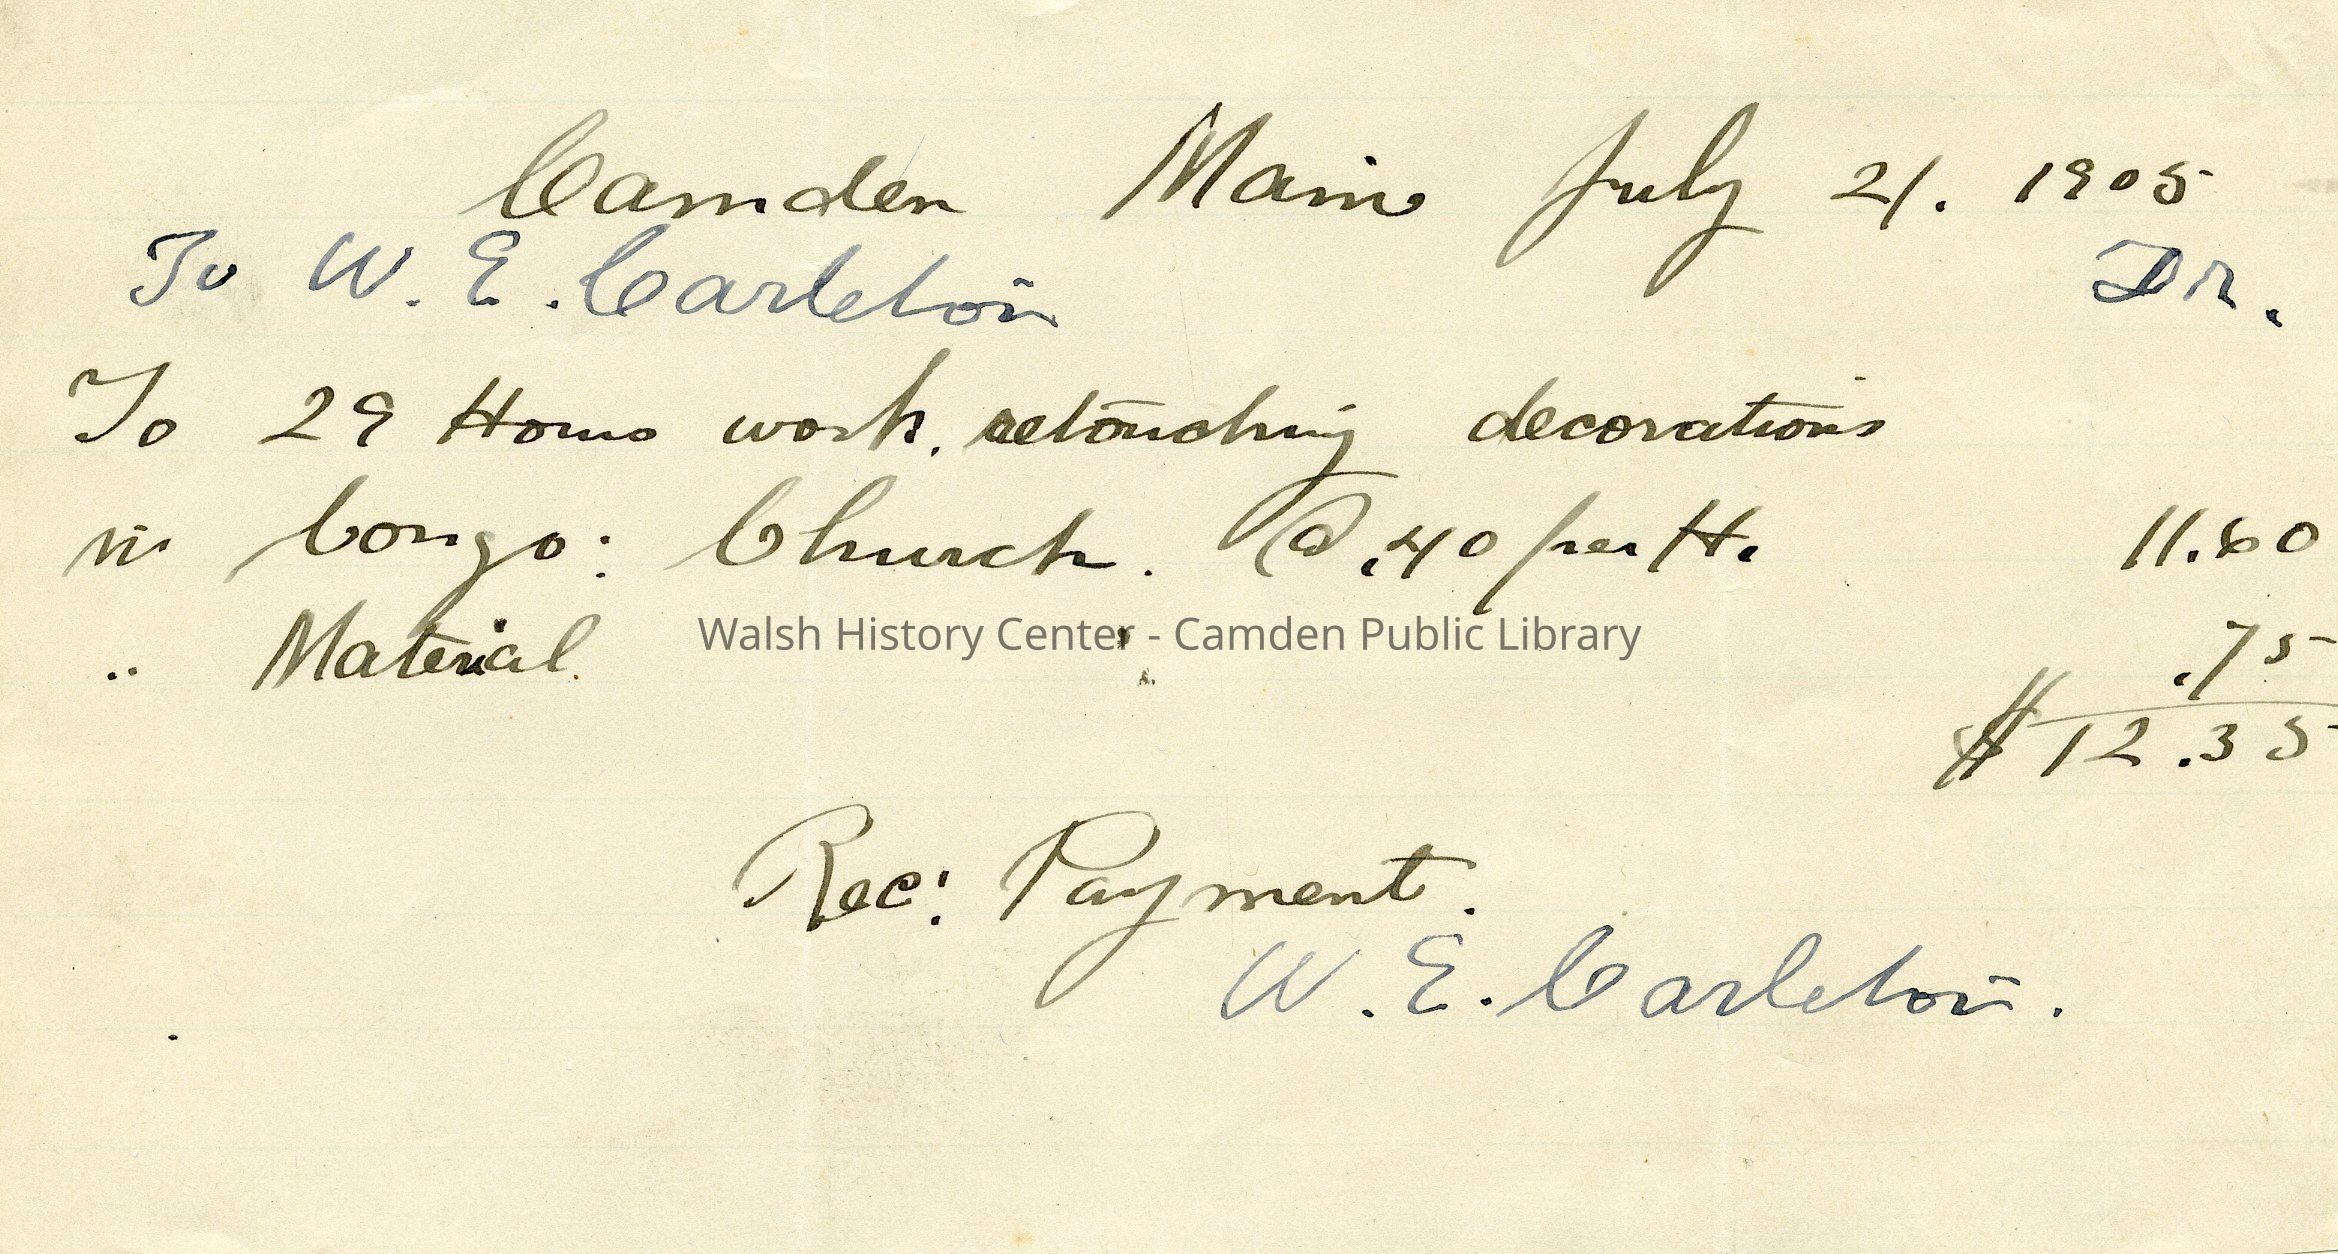 Camden Maine July 21. 1905
To W. E. Carleton Dr.
To 29 Hours work. retouching decorations
in Congo: Church. @ .40 per H. 11.60
" Material .75
Walsh History Center - Camden Public Library
$12.35
Rec: Payment.
W. E. Carleton.